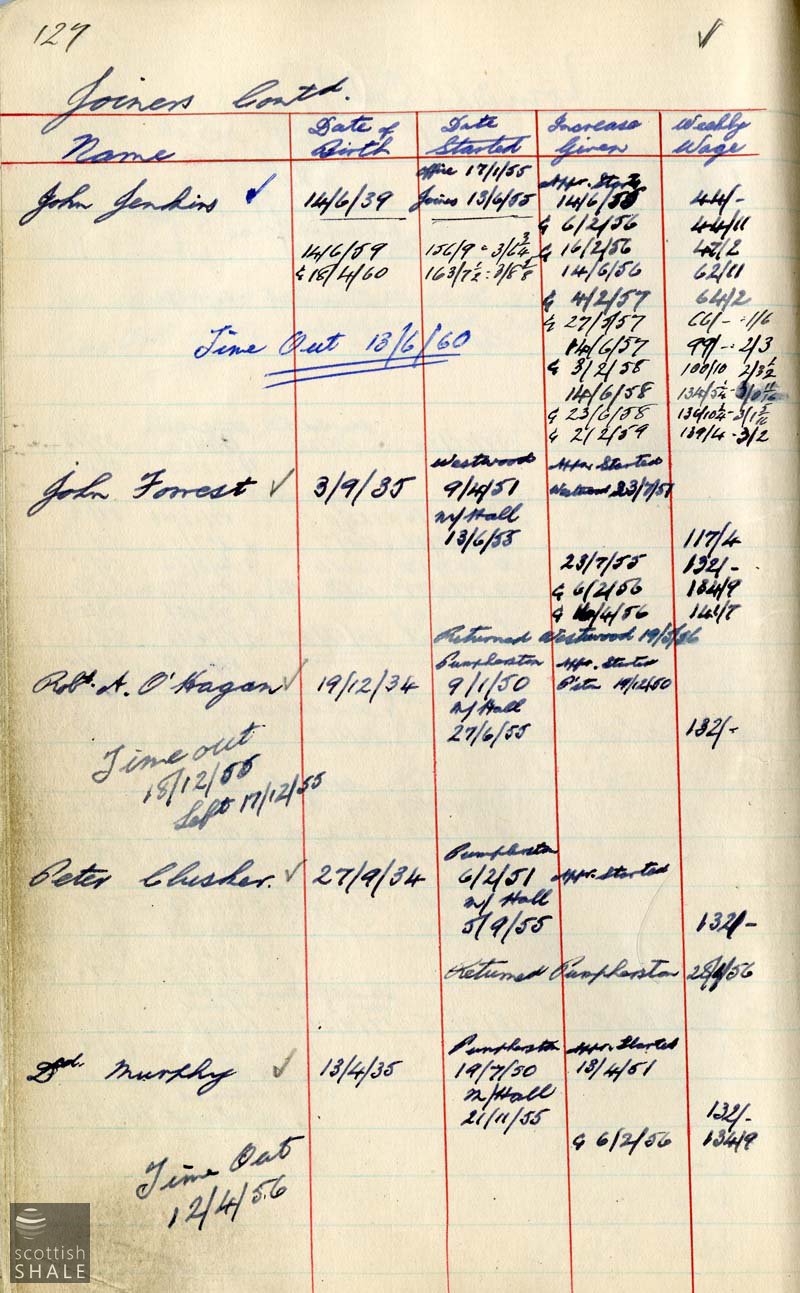 127
Joiners Contd.
Name Date of Birth Date Started Increase Given Weekly Wage
Office 17/1/55 Appr. Starts
John Jenkins ✓ 14/6/39 Joiner 13/6/55 14/6/55 44/-
& 6/2/56 44/11
14/6/59 156/9 = 3/6¾ & 16/2/56 47/2
& 18/4/60 163/7½ = 3/8 14/6/56 62/11
& 4/2/57 64/2
& 27/5/57 66/- = 1/6
14/6/57 99/- = 2/3
Time Out 13/6/60 & 3/2/58 100/10 2/3½
14/6/58 134/5¼ = 3/0 11/16
& 23/6/58 136/10¼ = 3/1
& 2/2/59 139/4 = 3/2
Westwood Appr. Started
John Forrest ✓ 3/9/35 9/4/51 Westwood 23/7/51
n/Hall
13/6/55 117/4
23/7/55 132/-
& 6/2/56 134/9
& 16/4/56 141/7
Returned Westwood 19/5/56
Pumpherston Appr. Started
Robt. A. O'Hagan ✓ 19/12/34 9/1/50 P'ston 19/12/50
n/Hall
27/6/55 132/-
Time out
18/12/55
Left 17/12/55
Pumpherston
Peter Clusker. ✓ 27/9/34 6/2/51 Appr. Started
n/Hall
5/9/55 132/-
Returned Pumpherston
Pumpherston Appr. Started
Dd. Murphy ✓ 13/4/35 19/7/50 13/4/51
n/Hall
21/11/55 132/-
& 6/2/56 134/9
Time Out
12/4/56
scottish
SHALE